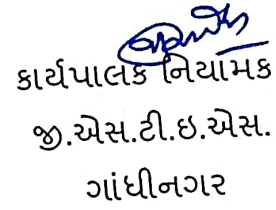 કાર્યપાલક નિયામક
જી.એસ.ટી.ઇ.એસ.
ગાંધીનગર